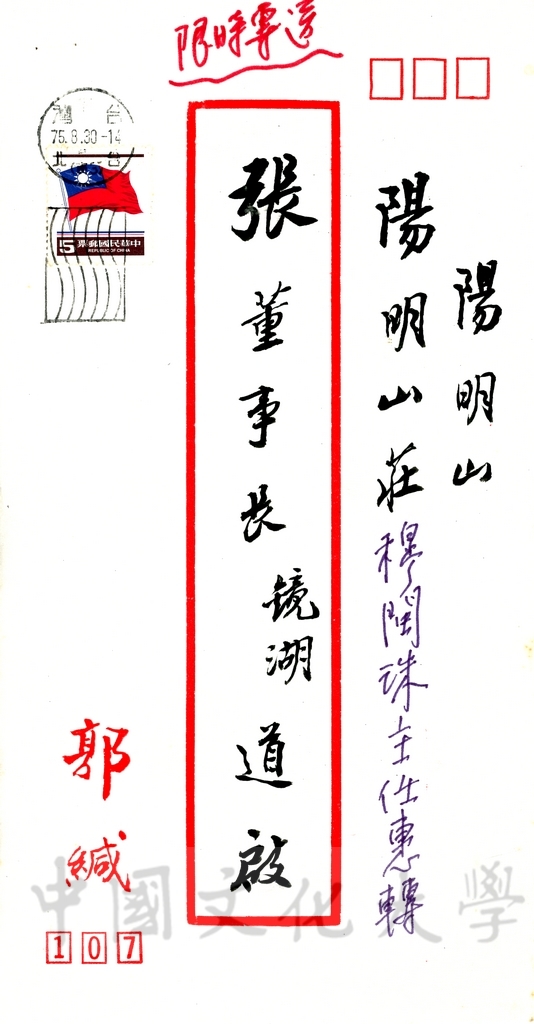 限時專送
陽明山
陽明山莊穆閩珠主任惠轉
張董事長鏡湖道啟
郭緘
107
台灣
75.8.30-14
台北
中華民國郵票
REPUBLIC OF CHINA
15
中國文化大學